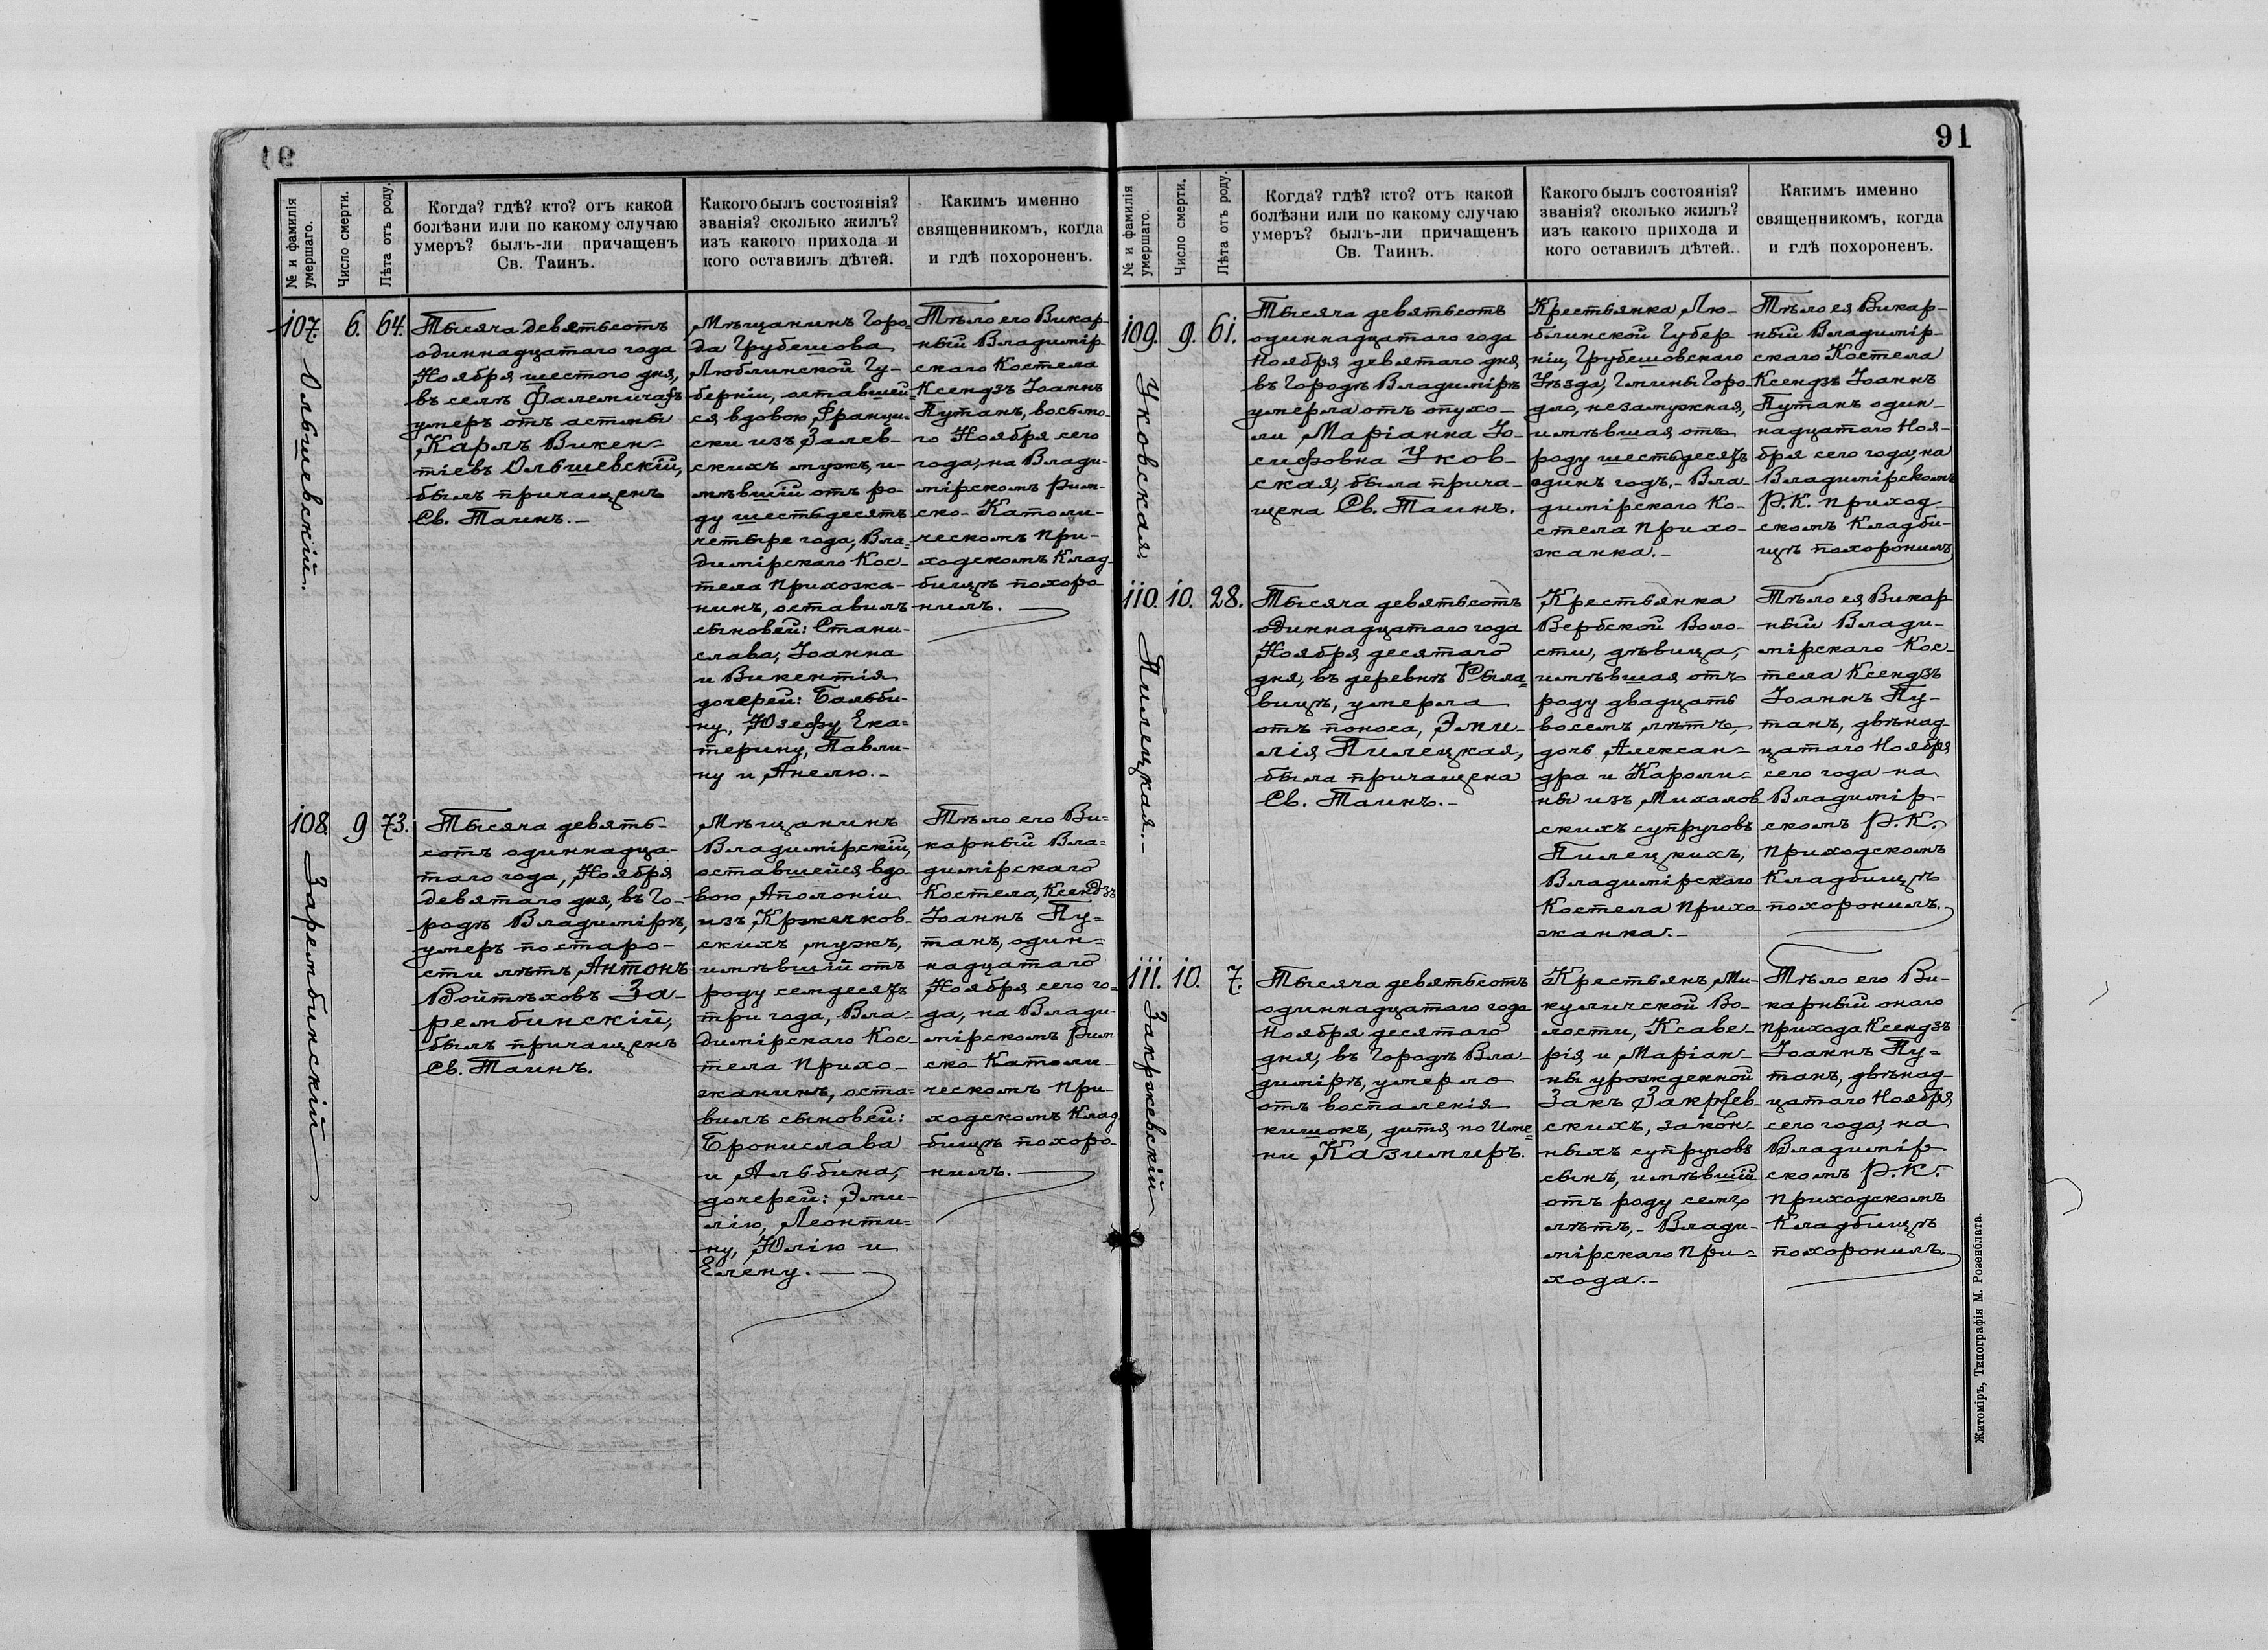 91
№ и фамилія
умершаго.
Число смерти.
Лѣта отъ роду.
Когда? гдѣ? кто? отъ какой
болѣзни или по какому случаю
умеръ? былъ-ли причащенъ
Св. Таинъ.
Какого былъ состоянія?
званія? сколько жилъ?
изъ какого прихода и
кого оставилъ дѣтей.
Какимъ именно
священникомъ, когда
и гдѣ похороненъ.
107.
Ольшевскій.
6.
64.
Тысяча девятьсотъ
одиннадцатаго года
Ноября шестого дня,
въ селѣ Фалемичахъ
умеръ отъ астмы
Карлъ Викен-
тіевъ Ольшевскій,
былъ причащенъ
Св. Таинъ.-
Мѣщанинъ Горо-
да Грубешова
Люблинской Гу-
берніи, оставшей-
ся вдовою, Франци-
ски изъ Залев-
скихъ мужъ, и-
мѣвшій отъ ро-
ду шестьдесятъ
четыре года, Вла-
димірскаго Кос-
тела прихожа-
нинъ, оставилъ
сыновей: Стани-
слава, Іоанна
и Викентія
дочерей: Бальби-
ну, Юзефу, Ека-
терину, Павли-
ну и Анелю.-
Тѣло его Викар-
ный Владимір-
скаго Костела
Ксендзъ Іоаннъ
Путанъ, восьмо-
го Ноября сего
года, на Влади-
мірскомъ Рим-
ско-Католи-
ческомъ При-
ходскомъ Клад-
бищѣ похоро-
нилъ.
108
Зарембинскій
9
73.
Тысяча девять-
сотъ одиннадца-
таго года, Ноября
девятаго дня, въ Го-
родѣ Владимірѣ,
умеръ по старо-
сти лѣтъ, Антонъ
Войтѣховъ За-
рембинскій,
былъ причащенъ
Св. Таинъ.
Мѣщанинъ
Владимірскій,
оставшейся вдо-
вою Аполоніи
изъ Кржечков-
скихъ мужъ,
имѣвшій отъ
роду семдесятъ
три года, Вла-
димірскаго Кос-
тела прихо-
жанинъ, оста-
вилъ сыновей:
Бронислава
и Альбина,
дочерей: Эми-
лію, Леонти-
ну, Юлію и
Елену.-
Тѣло его Ви-
карный Вла-
димірскаго
Костела, Ксендзъ
Іоаннъ Пу-
танъ, один-
надцатаго
Ноября сего го-
да, на Влади-
мірскомъ Рим
ско-Католи-
ческомъ При-
ходскомъ Клад
бищѣ похоро-
нилъ.-
91
№ и фамилія
умершаго.
Число смерти.
Лѣта отъ роду.
Когда? гдѣ? кто? отъ какой
болѣзни или по какому случаю
умеръ? былъ-ли причащенъ
Св. Таинъ.
Какого былъ состоянія?
званія? сколько жилъ?
изъ какого прихода и
кого оставилъ дѣтей.
Какимъ именно
священникомъ, когда
и гдѣ похороненъ.
109.
Уковская.
9.
61.
Тысяча девятьсотъ
одиннадцатаго года
Ноября девятаго дня,
въ Городѣ Владимірѣ
умерла отъ опухо-
ли Маріанна Іо-
сифовна Уков-
ская, была прича-
щена Св. Таинъ.
Крестьянка, Лю-
блинской Губер-
ніи, Грубешовскаго
Уѣзда, Гмины Горо-
дло, незамужная,
имѣвшая отъ
роду шестьдесятъ
одинъ годъ,- Вла-
димірскаго Ко-
стела прихо-
жанка.-
Тѣло ея Викар-
ный Владимір-
скаго Костела
Ксендзъ Іоаннъ
Путанъ один-
надцатаго Ноя-
бря сего года, на
Владимірскомъ
Р.К. приход-
скомъ кладби-
щѣ похоронилъ
110.
Пилецкая.-
10.
28.
Тысяча девятьсотъ
одиннадцатаго года
Ноября десятаго
дня, въ деревнѣ Рыла-
вицѣ, умерла
отъ поноса, Эми-
лія Пилецкая,
была причащена
Св. Таинъ.-
Крестьянка
Вербской Воло-
сти, дѣвица,
имѣвшая отъ
роду двадцать
восемъ лѣтъ,
дочь Алексан-
дра и Кароли-
ны изъ Михалов
скихъ супруговъ
Пилецкихъ,
Владимірскаго
Костела прихо
жанка.-
Тѣло ея, Викар
ный Влади-
мірскаго Кос-
тела Ксендзъ
Іоаннъ Пу-
танъ, двѣнад-
цатаго Ноября
сего года на
Владимір-
скомъ Р.К.
приходскомъ
Кладбищѣ
похоронилъ.
111.
Закржевскій
10.
7.
Тысяча девятьсотъ
одиннадцатаго года
Ноября десятаго
дня, въ Городѣ Вла-
димірѣ, умерло
отъ воспаленія
кишокъ, дитя, по име-
ни Казимиръ.
Крестьянъ, Ми-
куличской Во-
лости, Ксаве-
рія и Маріан-
ны урожденной
Закъ Закржев-
скихъ, закон-
ныхъ супруговъ
сынъ, имѣвшій
отъ роду семъ
лѣтъ,- Влади-
мірскаго При-
хода.-
Тѣло его Ви-
карный онаго
прихода Ксендзъ
Іоаннъ Пу-
танъ, двѣнад-
цатаго Ноября
сего года, на
Владимір
скомъ Р.К.
приходскомъ
Кладбищѣ
похоронилъ.
Житоміръ, Типографія М. Розенблата.